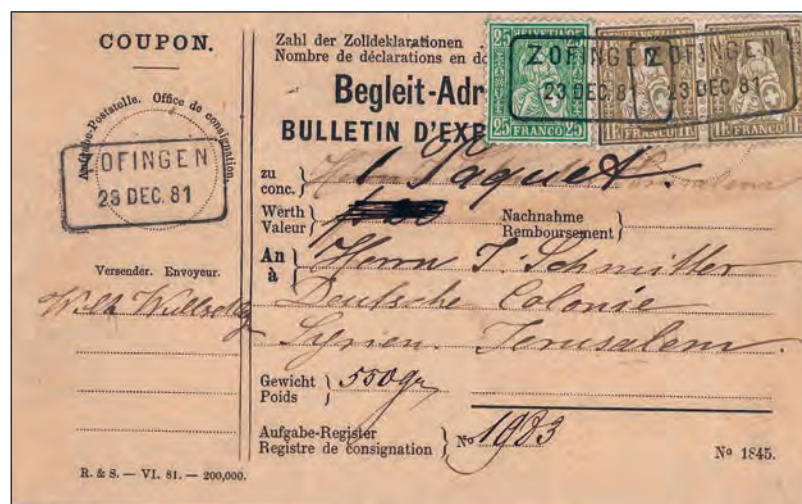 COUPON.
Aufgabe-Poststelle. Office de consignation.
OFINGEN
23 DEC. 81
Versender. Envoyeur.
R. & S. — VI. 81. — 200,000.
Zahl der Zolldeklarationen
Nombre de déclarations en do
Begleit-Adr
BULLETIN D'EXP
25 HELVETIA 25
25 FRANCO 25
1 FR FRANCO 1 FR
1 FR FRANCO 1 FR
ZOFINGEN
23 DEC. 81
ZOFINGEN
23 DEC. 81
zu
conc.
1 Paquet.
Werth
Valeur
Nachnahme
Remboursement
An
à
Herrn J. Schmitter
Deutsche Colonie
Syrien. Jerusalem.
Gewicht
Poids
550 gr
Aufgabe-Register
Registre de consignation
No 1983
No 1845.